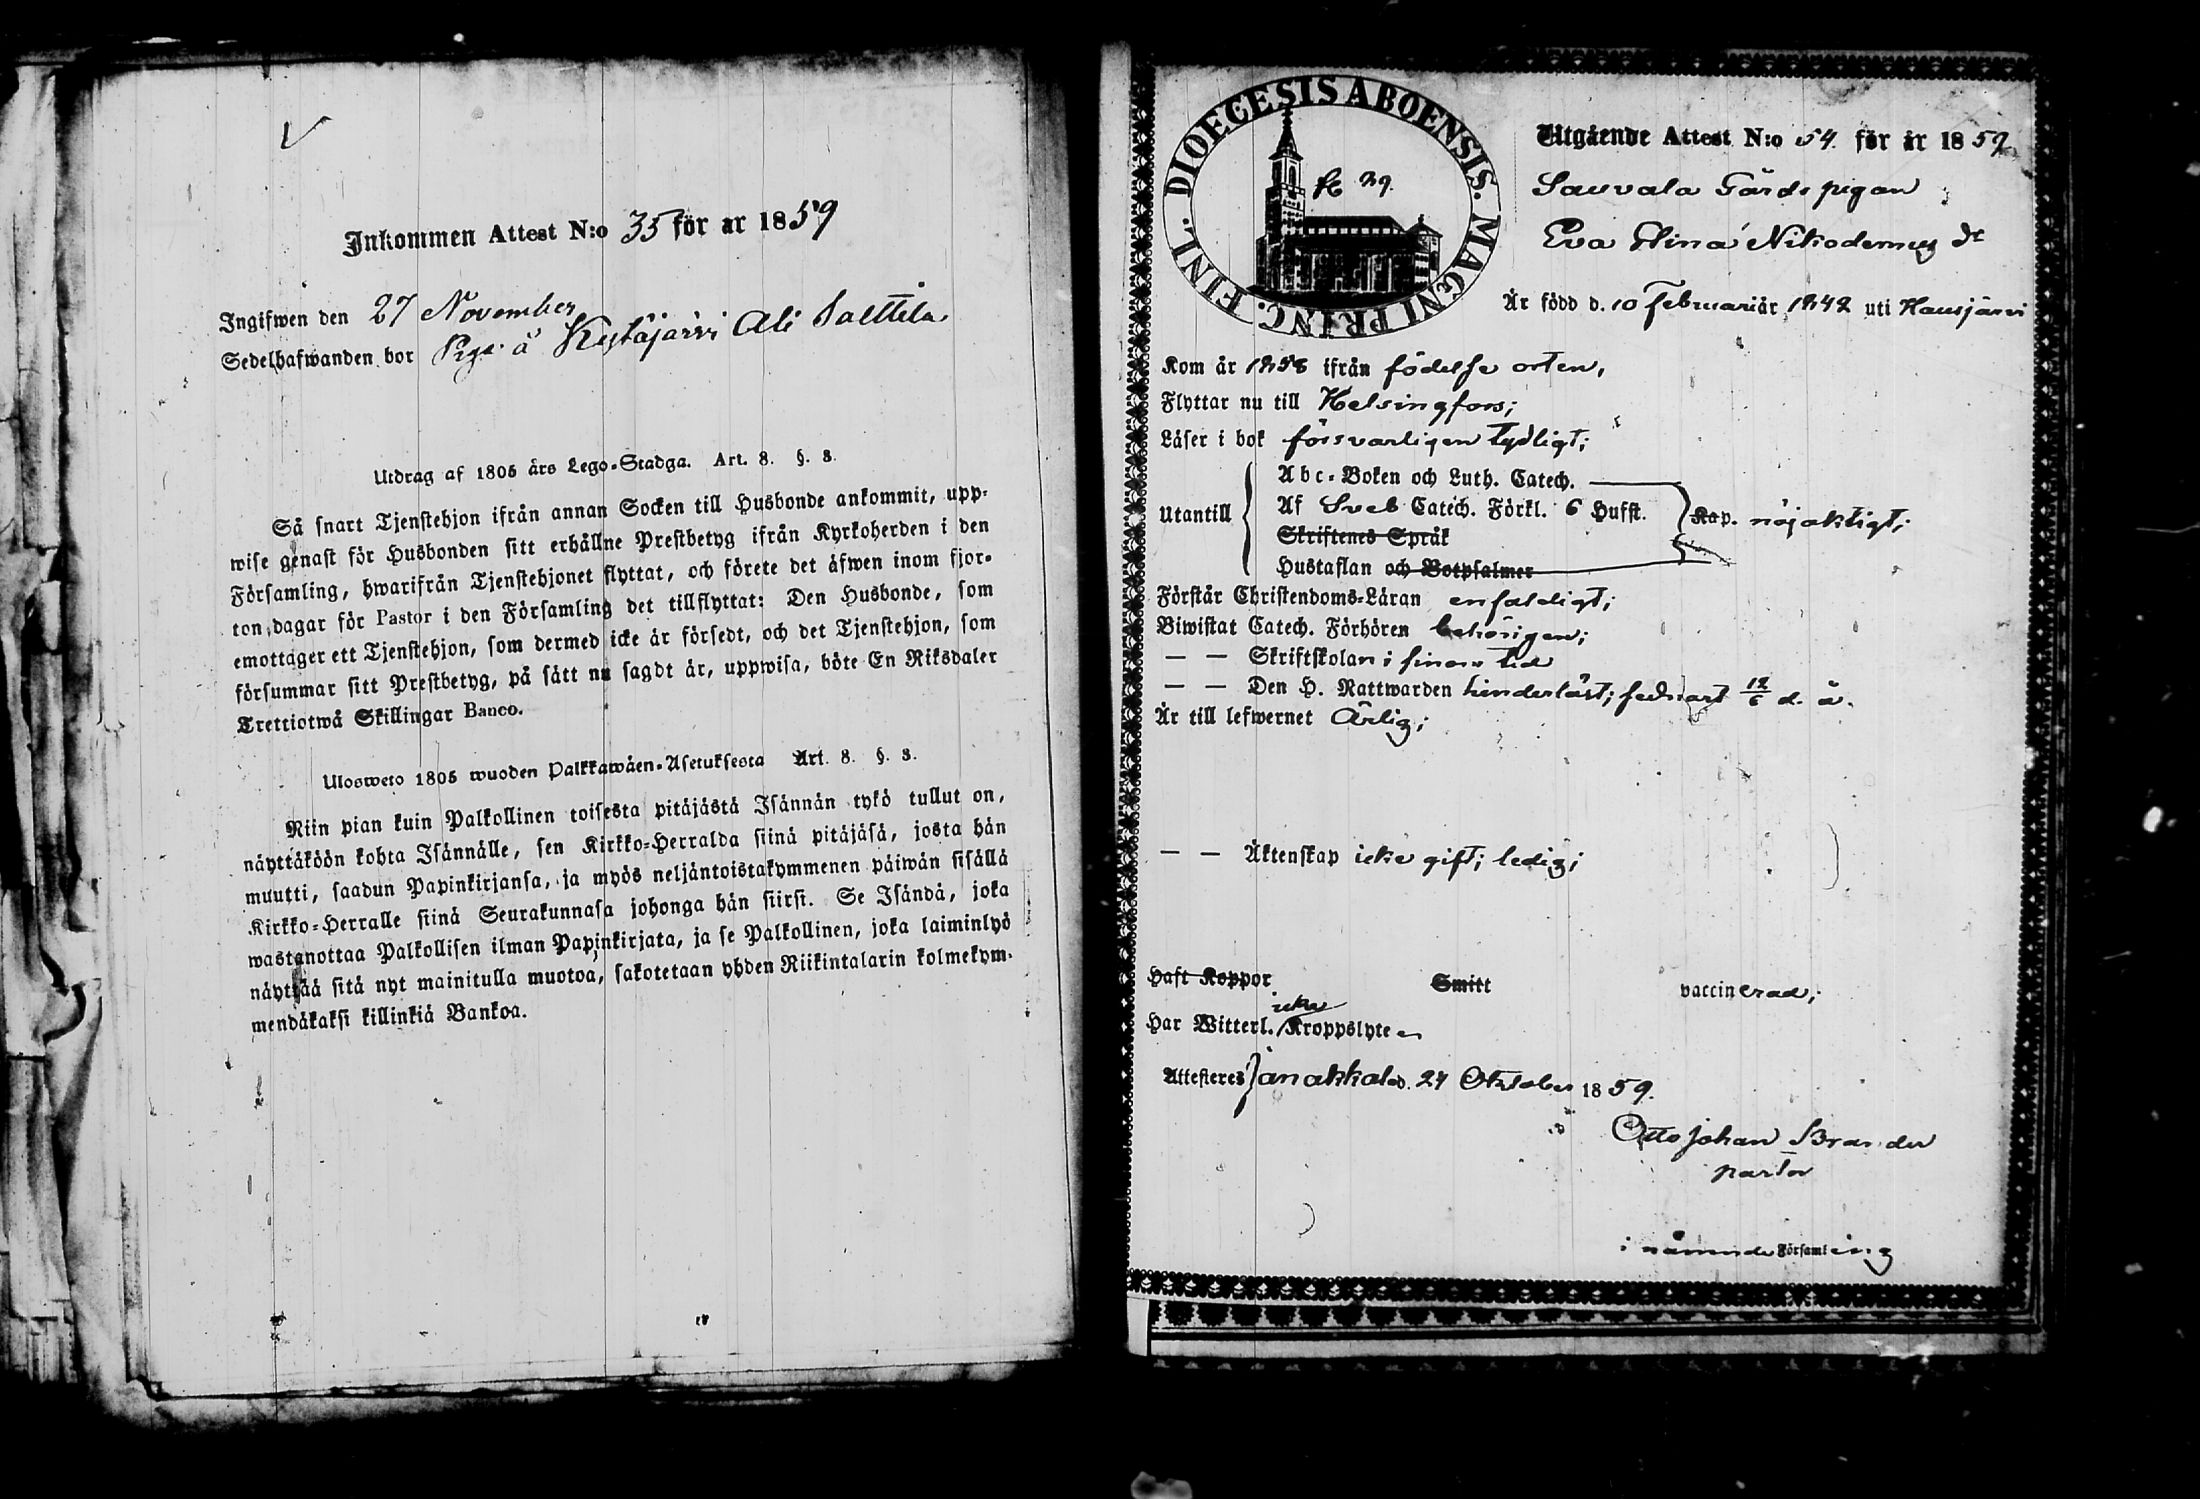 Inkommen Attest N:o 35 för år 1859
Ingifwen den 27 November
Sedelhafwanden bor Piga å Kytäjärvi Ali Salttila
Utdrag af 1805 års Lego-Stadga. Art. 8. §. 3.
Så snart Tjenstehjon ifrån annan Socken till Husbonde ankommit, upp-
wise genast för Husbonden sitt erhållne Prestbetyg ifrån Kyrkoherden i den
Församling, hwarifrån Tjenstehjonet flyttat, och förete det äfwen inom fjor-
ton dagar för Pastor i den Församling det tillflyttat: Den Husbonde, som
emottager ett Tjenstehjon, som dermed icke är försedt, och det Tjenstehjon, som
försummar sitt Prestbetyg, på sätt nu sagdt är, uppwisa, böte En Riksdaler
Trettiotwå Skillingar Banco.
Ulosweto 1805 wuoden Palkkawäen-Asetuksesta Art. 8. §. 3.
Niin pian kuin Palkollinen toisesta pitäjästä Isännän tykö tullut on,
näyttäköön kohta Isännälle, sen Kirkko-Herralda siinä pitäjäsä, josta hän
muutti, saadun Papinkirjansa, ja myös neljäntoistakymmenen päiwän sisällä
Kirkko-Herralle siinä Seurakunnasa johonga hän siirsi. Se Isändä, joka
wastanottaa Palkollisen ilman Papinkirjata, ja se Palkollinen, joka laiminlyö
näyttää sitä nyt mainitulla muotoa, sakotetaan yhden Riikintalarin kolmekym-
mendäkaksi killinkiä Bankoa.
DIOECESIS ABOENSIS. MAGNI PRINC. FINL.
Utgående Attest N:o 54. för år 1859
Sauvala Gårds pigan
Eva Elina Nikodemus dr
Är född d. 10 Februari år 1842 uti Hausjärvi
Kom år 1858 ifrån födelse orten,
Flyttar nu till Helsingfors;
Läser i bok försvarligen tydligt;
Utantill
Abc-Boken och Luth. Catech.
Af Sveb Catech. Förkl. 6 Hufst. Kap. nöjaktigt;
Skriftenes Språk
Hustaflan och Botpsalmer
Förstår Christendoms-Läran enfaldigt;
Biwistat Catech. Förhören behörigen;
— — Skriftskolan i sinom tid
— — Den H. Nattwarden hinderlöst; sednast 12/6 d. å.
Är till lefwernet Ärlig;
— — Äktenskap icke gift; ledig;
Haft Koppor Smitt vaccinerad;
Har Witterl. icke Kroppslyte
Attesteres Janakkala d. 24 Oktober 1859.
Otto Johan Brander
pastor
i nämnde Församling